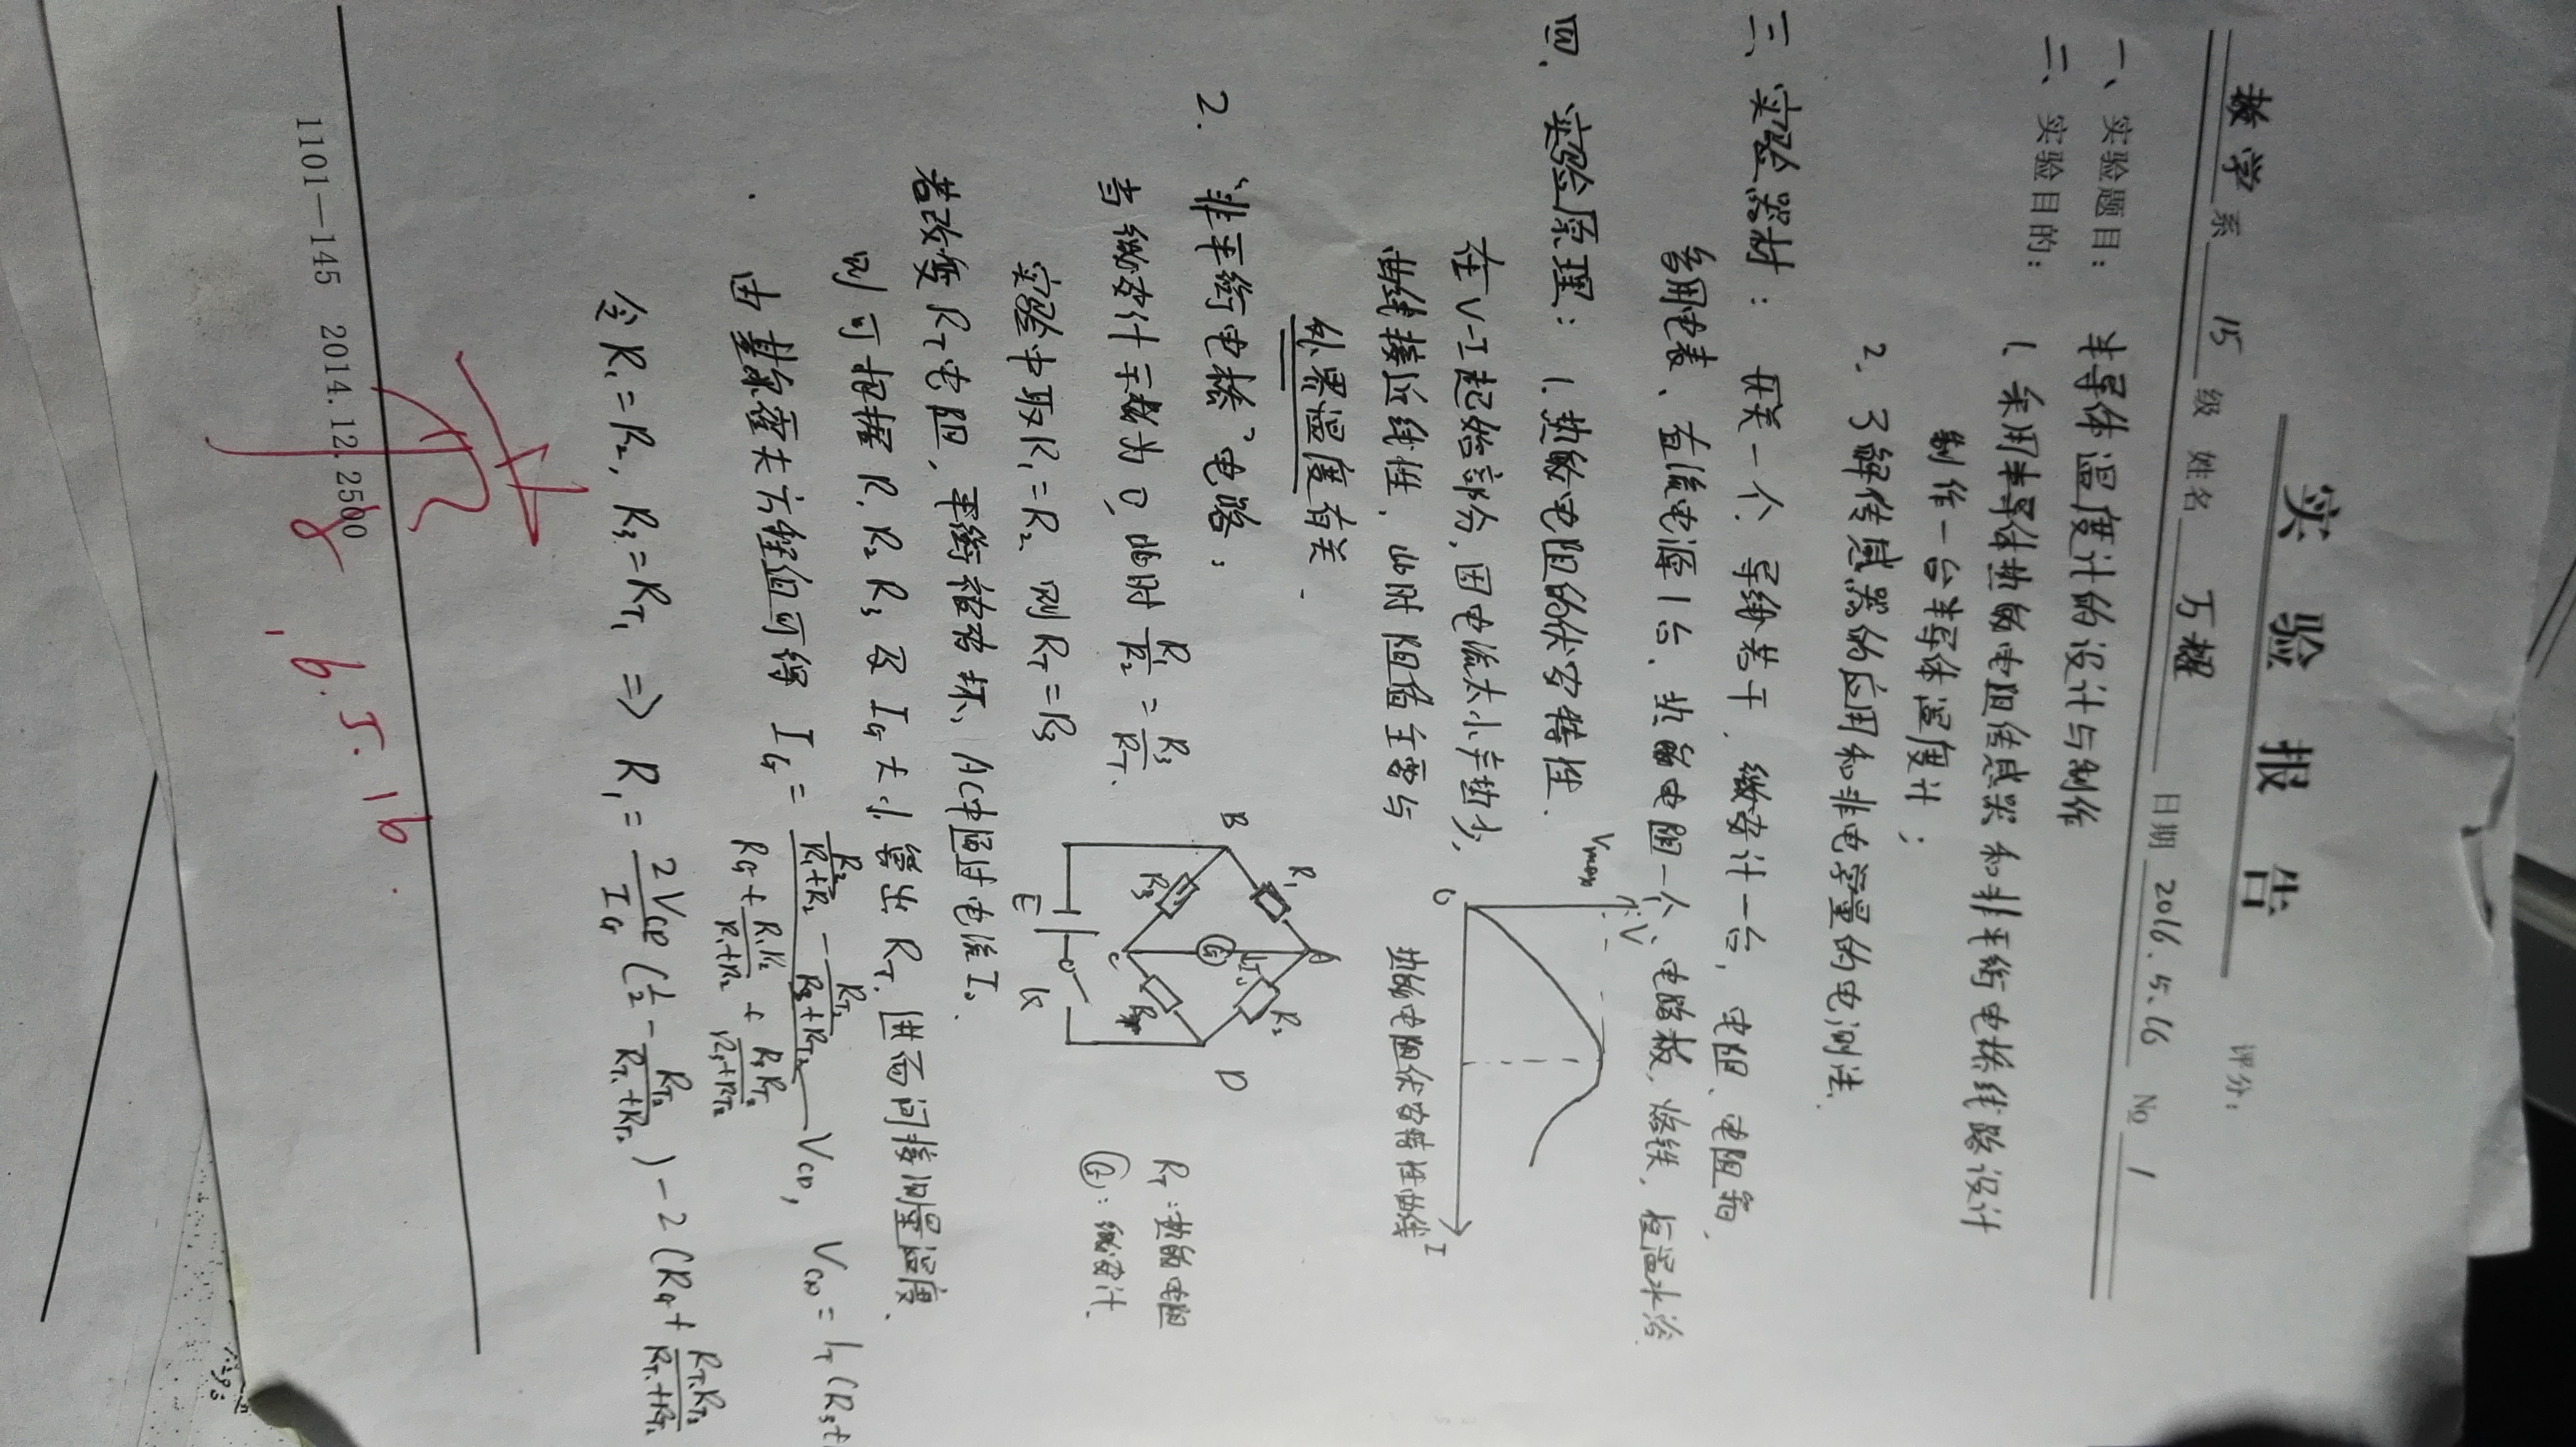 实 验 报 告
评分：
数学 系 15 级 姓名 万耀 日期 2016.5.16 No 1
一、实验题目： 半导体温度计的设计与制作
二、实验目的： 1、采用半导体热敏电阻传感器和非平衡电桥线路设计
制作一台半导体温度计；
2. 了解传感器的应用和非电学量的电测法.
三、实验器材： 开关一个、导线若干、微安计一台，电阻、电阻箱，
万用电表、直流电源1台、热敏电阻一个、电路板、烙铁、恒温水浴
四、实验原理： 1.热敏电阻的伏安特性.
在V-I起始部分，因电流太小、
曲线接近线性，此时阻值主要与
外界温度有关.
Vmax
V
0
I
热敏电阻伏安特性曲线
2. “非平衡电桥”电路：
当微安计示数为0，此时 R₁/R₂ = R₃/R_T.
实验中取R₁=R₂ 则R_T=R₃
B
R₁
A
R₂
R₃
C
G
D
E
K
R_T：热敏电阻
G：微安计
若改变R_T电阻，平衡被破坏，AC中间有电流I。
则可根据R₁ R₂ R₃及I_G大小，算出R_T，进而间接测量温度.
由基尔霍夫方程组可得 I_G = (R₂/(R₁+R₂) − R_T₂/(R₃+R_T₂)) / (R_G + R₁R₂/(R₁+R₂) + R₃R_T₂/(R₃+R_T₂)) V_CD,
令R₁=R₂, R₃=R_T₁ ⇒ R₁ = 2V_CD/I_G (1/2 − R_T₂/(R_T₁+R_T₂)) − 2(R_G + R_T₁R_T₂/(R_T₁+R_T₂)
1101—145 2014.12.2500
16.5.19.